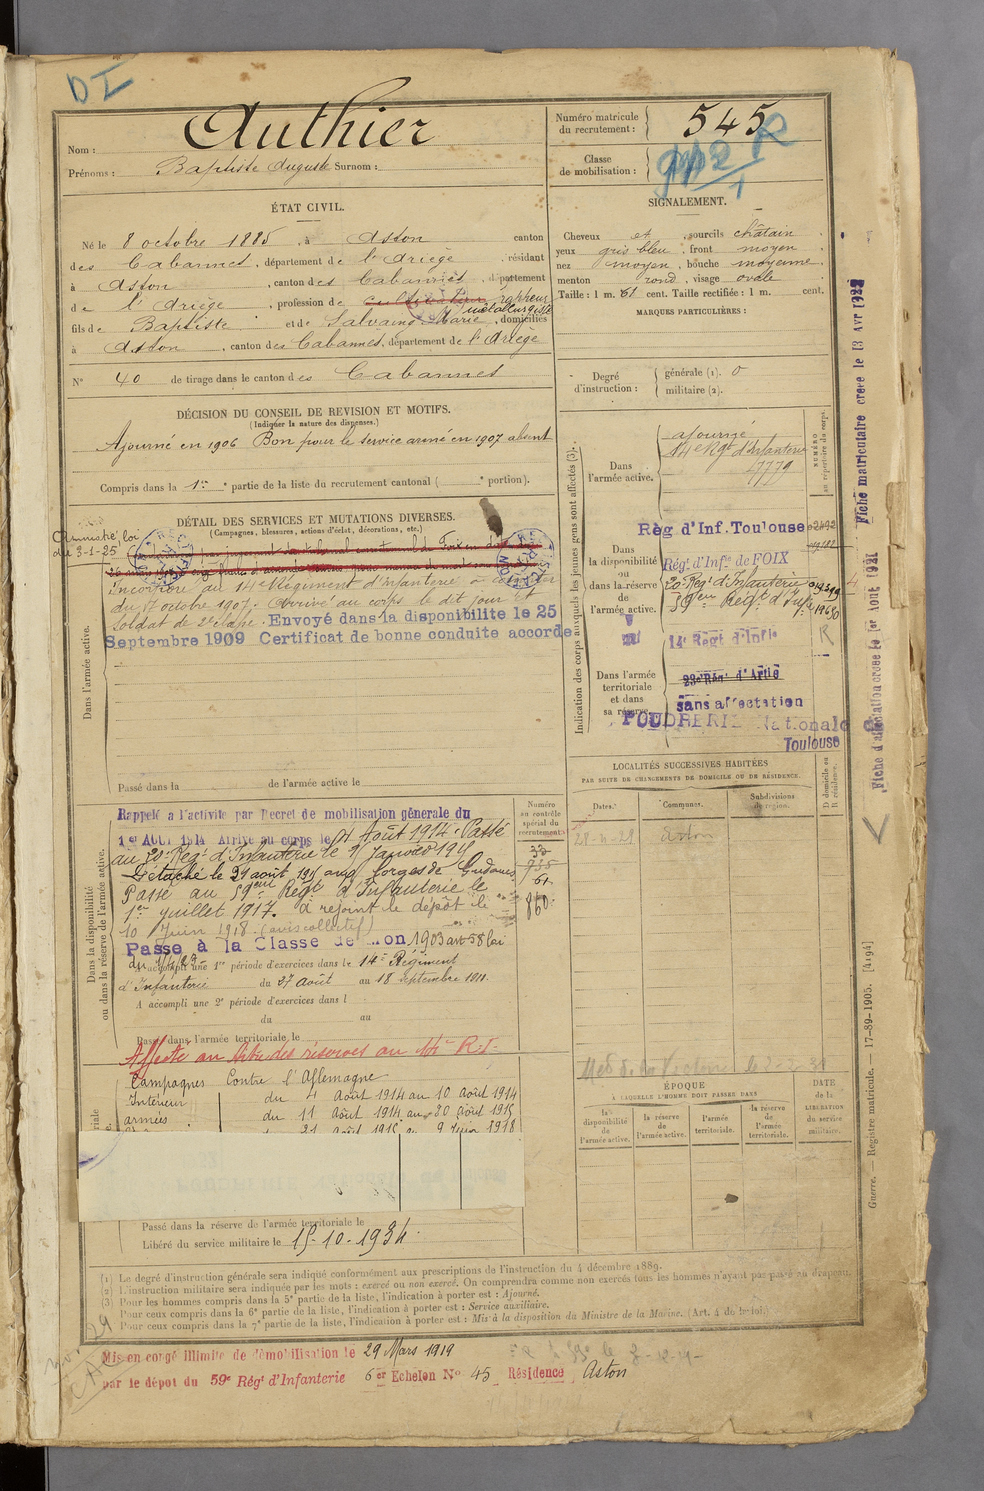 DI
Nom : Authier
Prénoms : Baptiste Auguste Surnom :
Numéro matricule du recrutement : 545
Classe de mobilisation :
ÉTAT CIVIL.
Né le 8 octobre 1885, à Aston canton
des Cabannes, département de l'Ariège, résidant
à Aston, canton des Cabannes, département
de l'Ariège, profession de cultivateur
métallurgiste
fils de Baptiste et de Salvaing Marie, domiciliés
à Aston, canton des Cabannes, département de l'Ariège
N° 40 de tirage dans le canton des Cabannes
SIGNALEMENT.
Cheveux et sourcils châtain
yeux gris bleu, front moyen
nez moyen, bouche moyenne
menton rond, visage ovale
Taille : 1 m. 61 cent. Taille rectifiée : 1 m. cent.
MARQUES PARTICULIÈRES :
Degré d'instruction :
générale (1). 0
militaire (2).
DÉCISION DU CONSEIL DE REVISION ET MOTIFS.
(Indiquer la nature des dispenses.)
Ajourné en 1906 Bon pour le service armé en 1907 absent
Compris dans la 1re partie de la liste du recrutement cantonal ( portion).
DÉTAIL DES SERVICES ET MUTATIONS DIVERSES.
(Campagnes, blessures, actions d'éclat, décorations, etc.)
Amnistié loi
du 3-1-25
Dans l'armée active.
Incorporé au 14e Régiment d'Infanterie à compter
du 7 octobre 1907. Arrivé au corps le dit jour et
soldat de 2e classe. Envoyé dans la disponibilité le 25
Septembre 1909 Certificat de bonne conduite accordé
Passé dans la de l'armée active le
Indication des corps auxquels les jeunes gens sont affectés (3).
NUMÉRO au répertoire du corps.
Dans l'armée active.
ajourné
14e Rgt d'Infanterie
Dans la disponibilité ou dans la réserve de l'armée active.
Règ d'Inf. Toulouse
Régt d'Infie de FOIX
20e Régt d'Infanterie
59eme Régt d'Infie
14e Regt d'Infie
Dans l'armée territoriale et dans sa réserve.
23e Rég. d'Artie
sans affectation
POUDRERIE Nationale
Toulouse
R
Fiche matriculaire créée le 13 Avr 192
Fiche d'affectation créée le 1er Août 1921
LOCALITÉS SUCCESSIVES HABITÉES
PAR SUITE DE CHANGEMENTS DE DOMICILE OU DE RÉSIDENCE.
Dates.
Communes.
Subdivisions de région.
D domicile ou R résidence.
Aston
Dans la disponibilité ou dans la réserve de l'armée active.
Numéro au contrôle spécial du recrutement
Rappelé à l'activité par Décret de mobilisation générale du
1er AOUT 1914 Arrivé au corps le 4 Août 1914. Passé
au 20e Régt d'Infanterie le 1er Janvier 191
Détaché le 21 août 1915 aux forges de Gudanes
Passé au 59eme Régt d'Infanterie le
1er juillet 1917. a rejoint le dépôt le
10 Juin 1918. (avis collectif)
Passé à la Classe de 1903 art 58 loi
A accompli une 1re période d'exercices dans le 14e Régiment
d'Infanterie du 27 août au 18 septembre 1911.
A accompli une 2e période d'exercices dans l
du au
Passé dans l'armée territoriale le
860
Affecté au des réserves au 14e R.I.
Campagnes Contre l'Allemagne
Intérieur du 4 Août 1914 au 10 Août 1914
armées du 11 Août 1914 au 20 Août 1915
du 21 août 1915 au 9 Juin 1918
ÉPOQUE
À LAQUELLE L'HOMME DOIT PASSER DANS
la disponibilité de l'armée active.
la réserve de l'armée active.
l'armée territoriale.
la réserve de l'armée territoriale.
DATE de la LIBÉRATION du service militaire.
Passé dans la réserve de l'armée territoriale le
Libéré du service militaire le 15-10-1934
(1) Le degré d'instruction générale sera indiqué conformément aux prescriptions de l'instruction du 4 décembre 1889.
(2) L'instruction militaire sera indiquée par les mots : exercé ou non exercé. On comprendra comme non exercés tous les hommes n'ayant pas passé au drapeau.
(3) Pour les hommes compris dans la 5e partie de la liste, l'indication à porter est : Ajourné.
Pour ceux compris dans la 6e partie de la liste, l'indication à porter est : Service auxiliaire.
Pour ceux compris dans la 7e partie de la liste, l'indication à porter est : Mis à la disposition du Ministre de la Marine. (Art. 4 de la loi.)
Guerre. — Registre matricule. — 17-89-1905. [4194]
Mis en congé illimité de démobilisation le 29 Mars 1919
par le dépôt du 59e Régt d'Infanterie 6er Echelon No 45 Résidence Aston